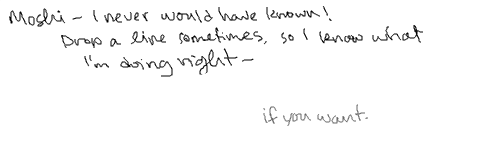 Moshi – I never would have known!
Drop a line sometimes, so I know what
I'm doing right –
if you want.